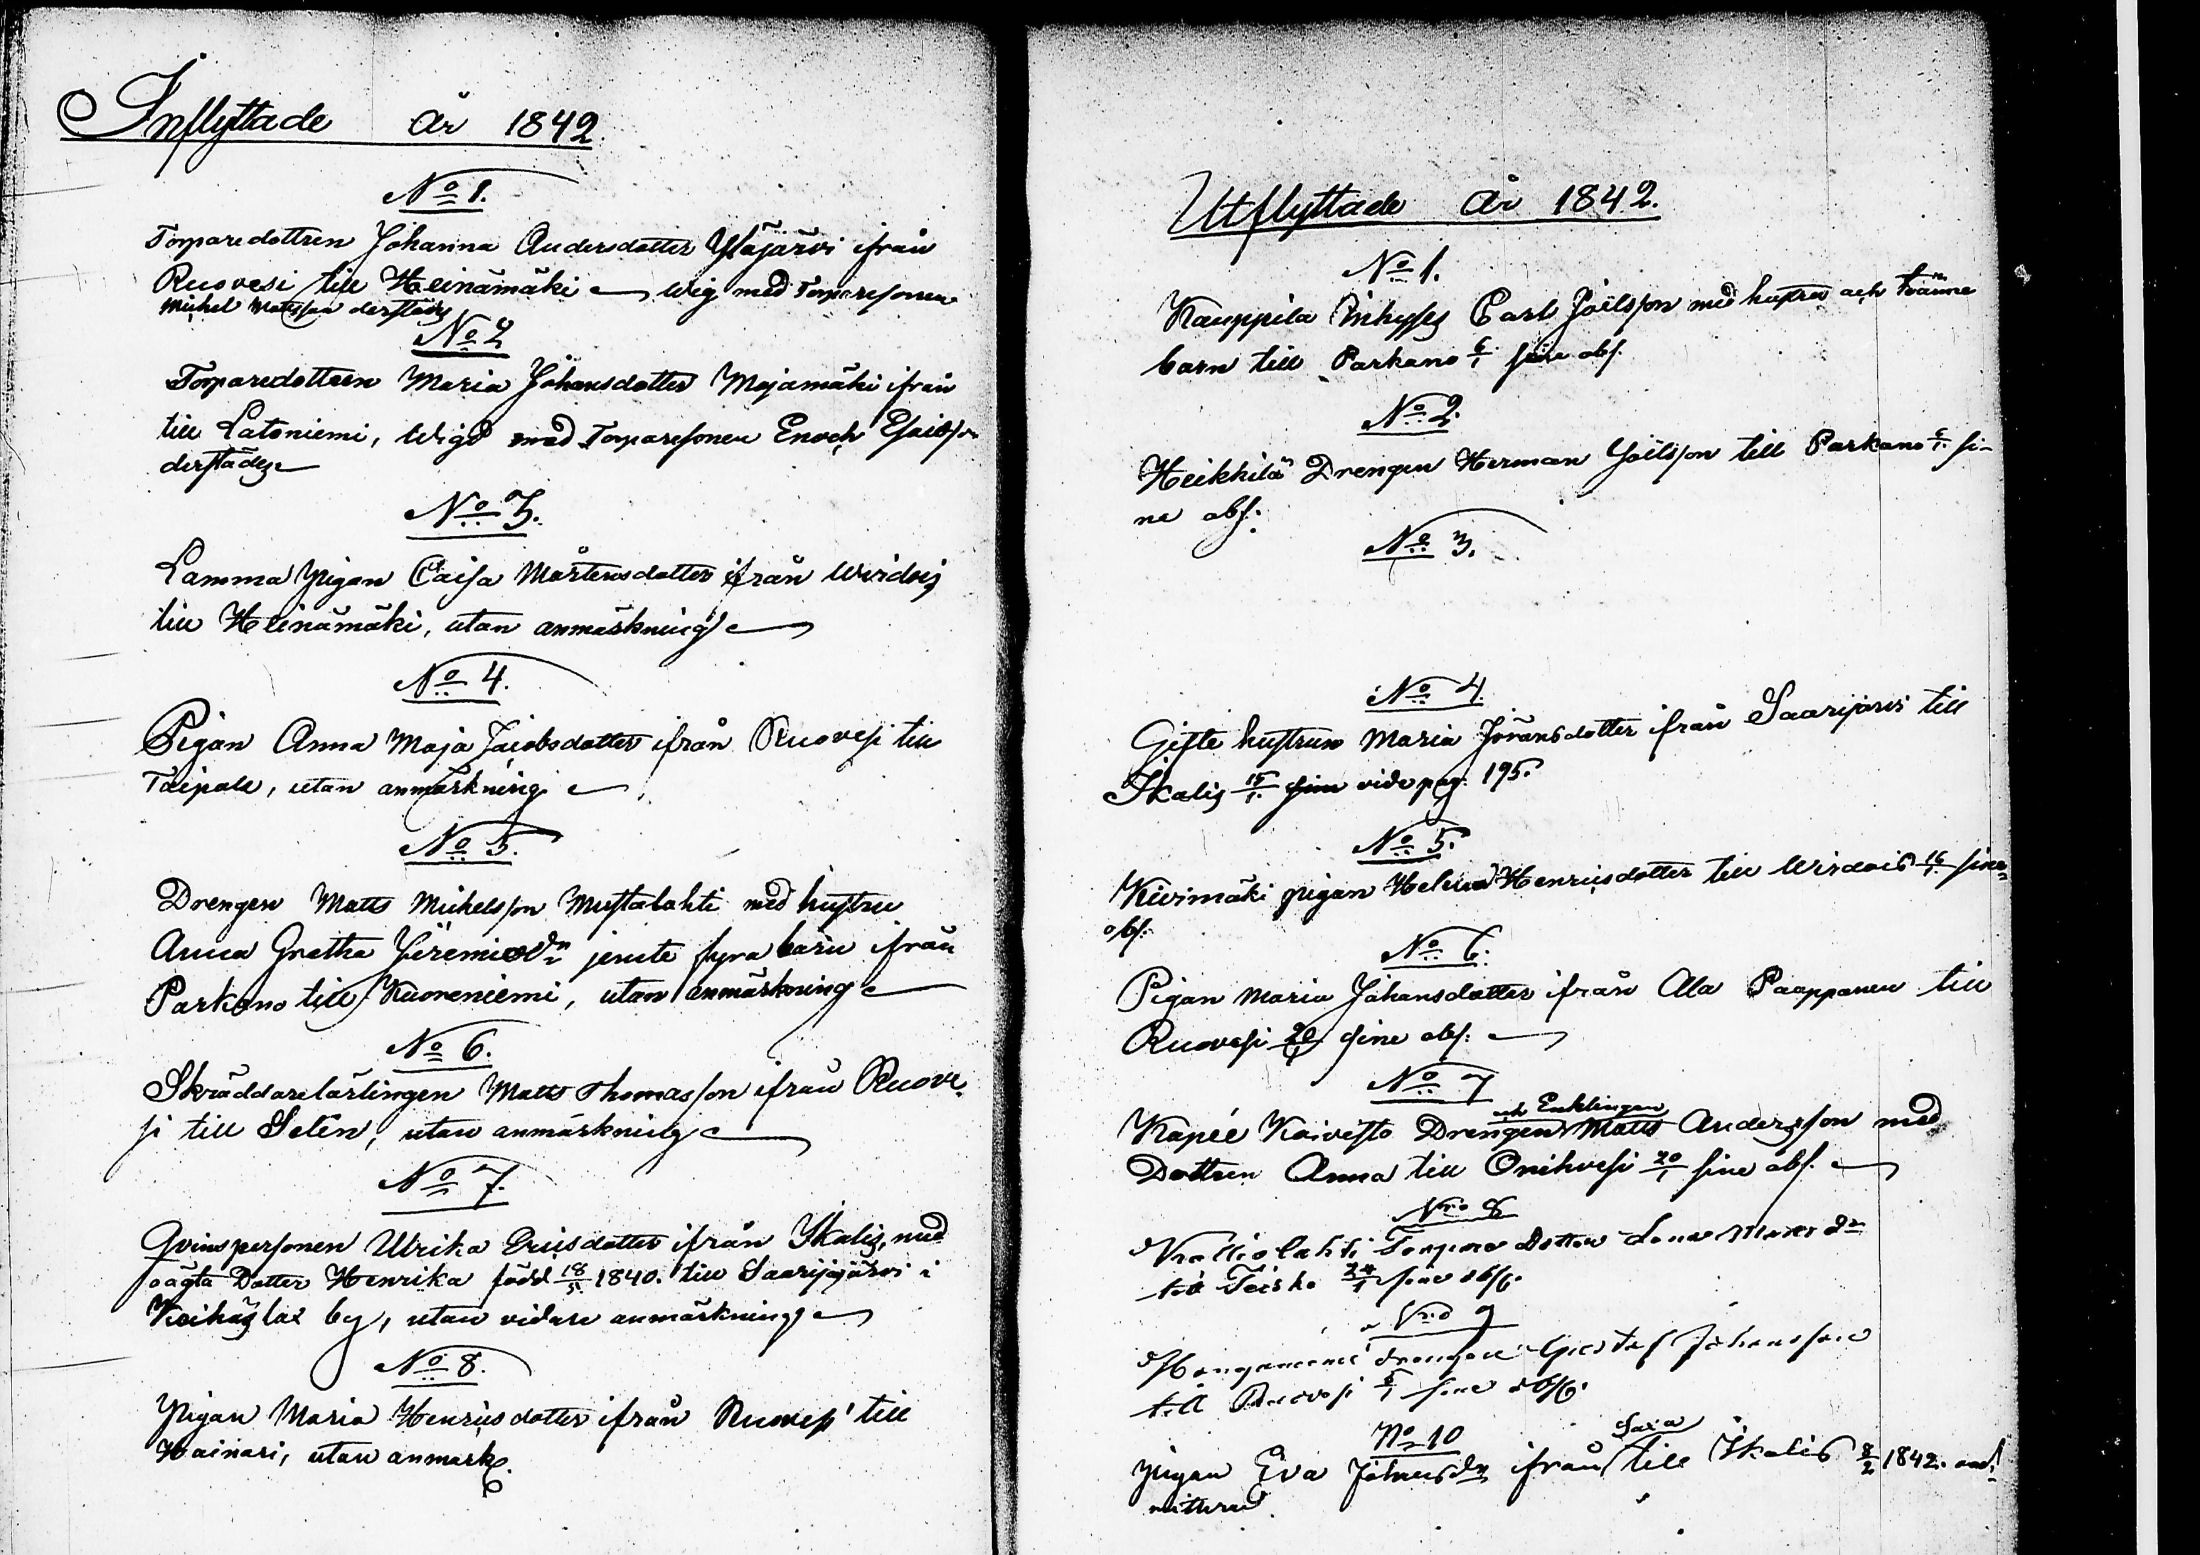 Inflyttade År 1842.
No 1.
Torparedottren Johanna Andersdotter Yläjärvi ifrån
Ruovesi till Heinämäki wig med Torparesonen
Michel Mattsson derstädes
No 2
Torparedottren Maria Johansdotter Majamäki ifrån
till Latoniemi, Wigd med Torparesonen Enoch Esaisson
derstädes
No 3.
Lamma Pigan Caisa Mårtensdotter ifrån Wirdois
till Heinämäki, utan anmärkning
No 4.
Pigan Anna Maja Jacobsdotter ifrån Ruovesi till
Taipale, utan anmärkning
No 5.
Drengen Matts Michelsson Mustalahti med hustru
Anna Gretha Jeremiedr jemte fyra barn ifrån
Parkano till Kuoreniemi, utan anmärkning
No 6.
Skräddarelärlingen Matts Thomasson ifrån Ruove-
si till Selin, utan anmärkning
No 7.
Qvinspersonen Ulrika Ericsdotter ifrån Ikalis, med
oägta Dotter Henrika född 18/5 1840. till Saarijärvi i
Keihäslax by, utan vidare anmärkning
No 8.
Pigan Maria Henricsdotter ifrån Ruovesi till
Hainari, utan anmärk.
Utflyttade År 1842.
No 1.
Kauppila Inhyses Carl Joelsson med hustru och tvänne
barn till Parkano 6/1 sine obs.
No 2.
Heikkilä Drengen Herman Joelsson till Parkano 6/1 si-
ne obs.
No 3.
No 4.
Gifte hustrun Maria Jöransdotter ifrån Saarijärvi till
Ikalis 15/1 vide pag. 195.
No 5.
Kivimäki pigan Helena Henricsdotter till Wirdois 16/1 sine
obs.
No 6.
Pigan Maria Johansdotter ifrån Ala Paappanen till
Ruovesi 20/1 sine obs.
No 7
och Enklingen
Kapée Koivisto Drengen Matts Andersson med
Dottren Anna till Onihvesi 20/1 sine obs.
Nro 8
Kalliolahti Torpare Dotter Lena Matts dr
till Teisko 24/1 sine obs.
Nro 9
Hanganiemi drengen Gustaf Johansson
till Ruovesi sine obs.
No 10
Saxa
Pigan Eva Johansdr ifrån till Ikalis 8/2 1842. ad
mitterad